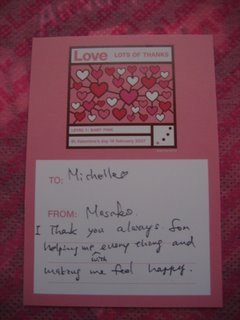 Love LOTS OF THANKS
LEVEL 1: BABY PINK
St. Valentine's day 14 february 2007
TO: Michelle
FROM: Masako.
I Thank you always for
helping me every thing and
with
making me feel happy.